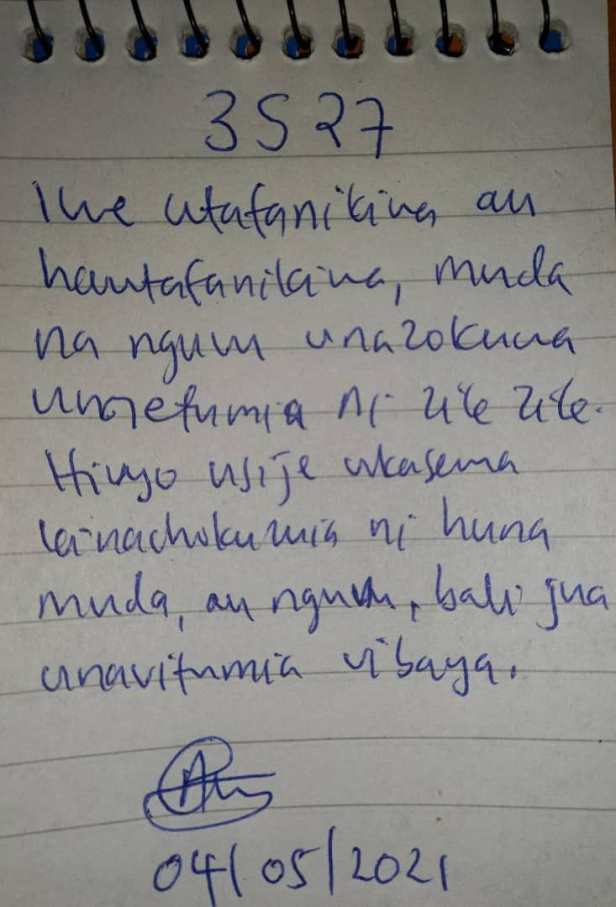 3527
Iwe utafanikiwa au
hautafanikiwa, muda
na nguvu unazokuwa
umetumia ni zile zile.
Hivyo usije ukasema
kinachokuumia ni huna
muda, au nguvu, bali jua
unavitumia vibaya.
04/05/2021